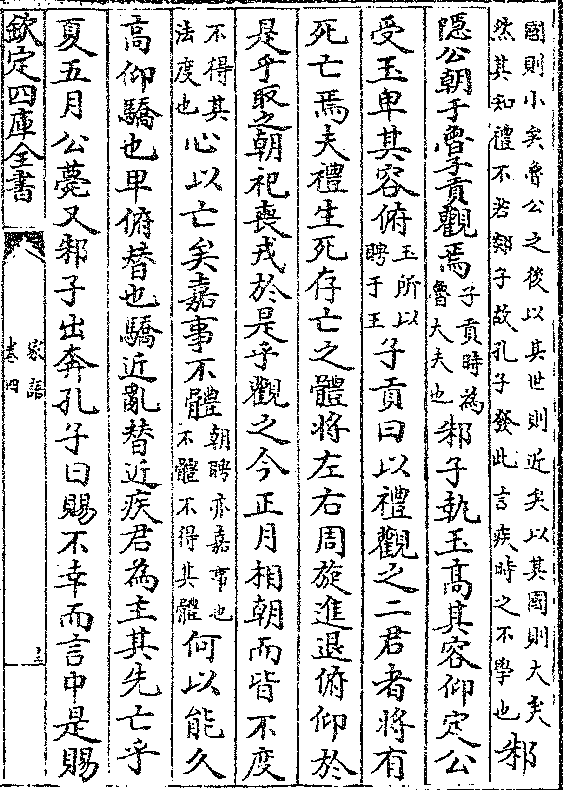 國則小矣魯公之後以其世則近矣以其國則大矣
然其知禮不若郯子故孔子發此言疾時之不學也
邾
隱公朝于魯子貢觀焉
子貢時為
魯大夫也
邾子執玉高其容仰定公
受玉卑其容俯
玉所以
聘于王
子貢曰以禮觀之二君者將有
死亡焉夫禮生死存亡之體將左右周旋進退俯仰於
是乎取之朝祀喪戎於是乎觀之今正月相朝而皆不度
不得其
法度也
心以亡矣嘉事不體
朝聘亦嘉事也
不體不得其體
何以能久
高仰驕也卑俯替也驕近亂替近疾君為主其先亡乎
夏五月公薨又邾子出奔孔子曰賜不幸而言中是賜
欽定四庫全書
家語
卷四
十三